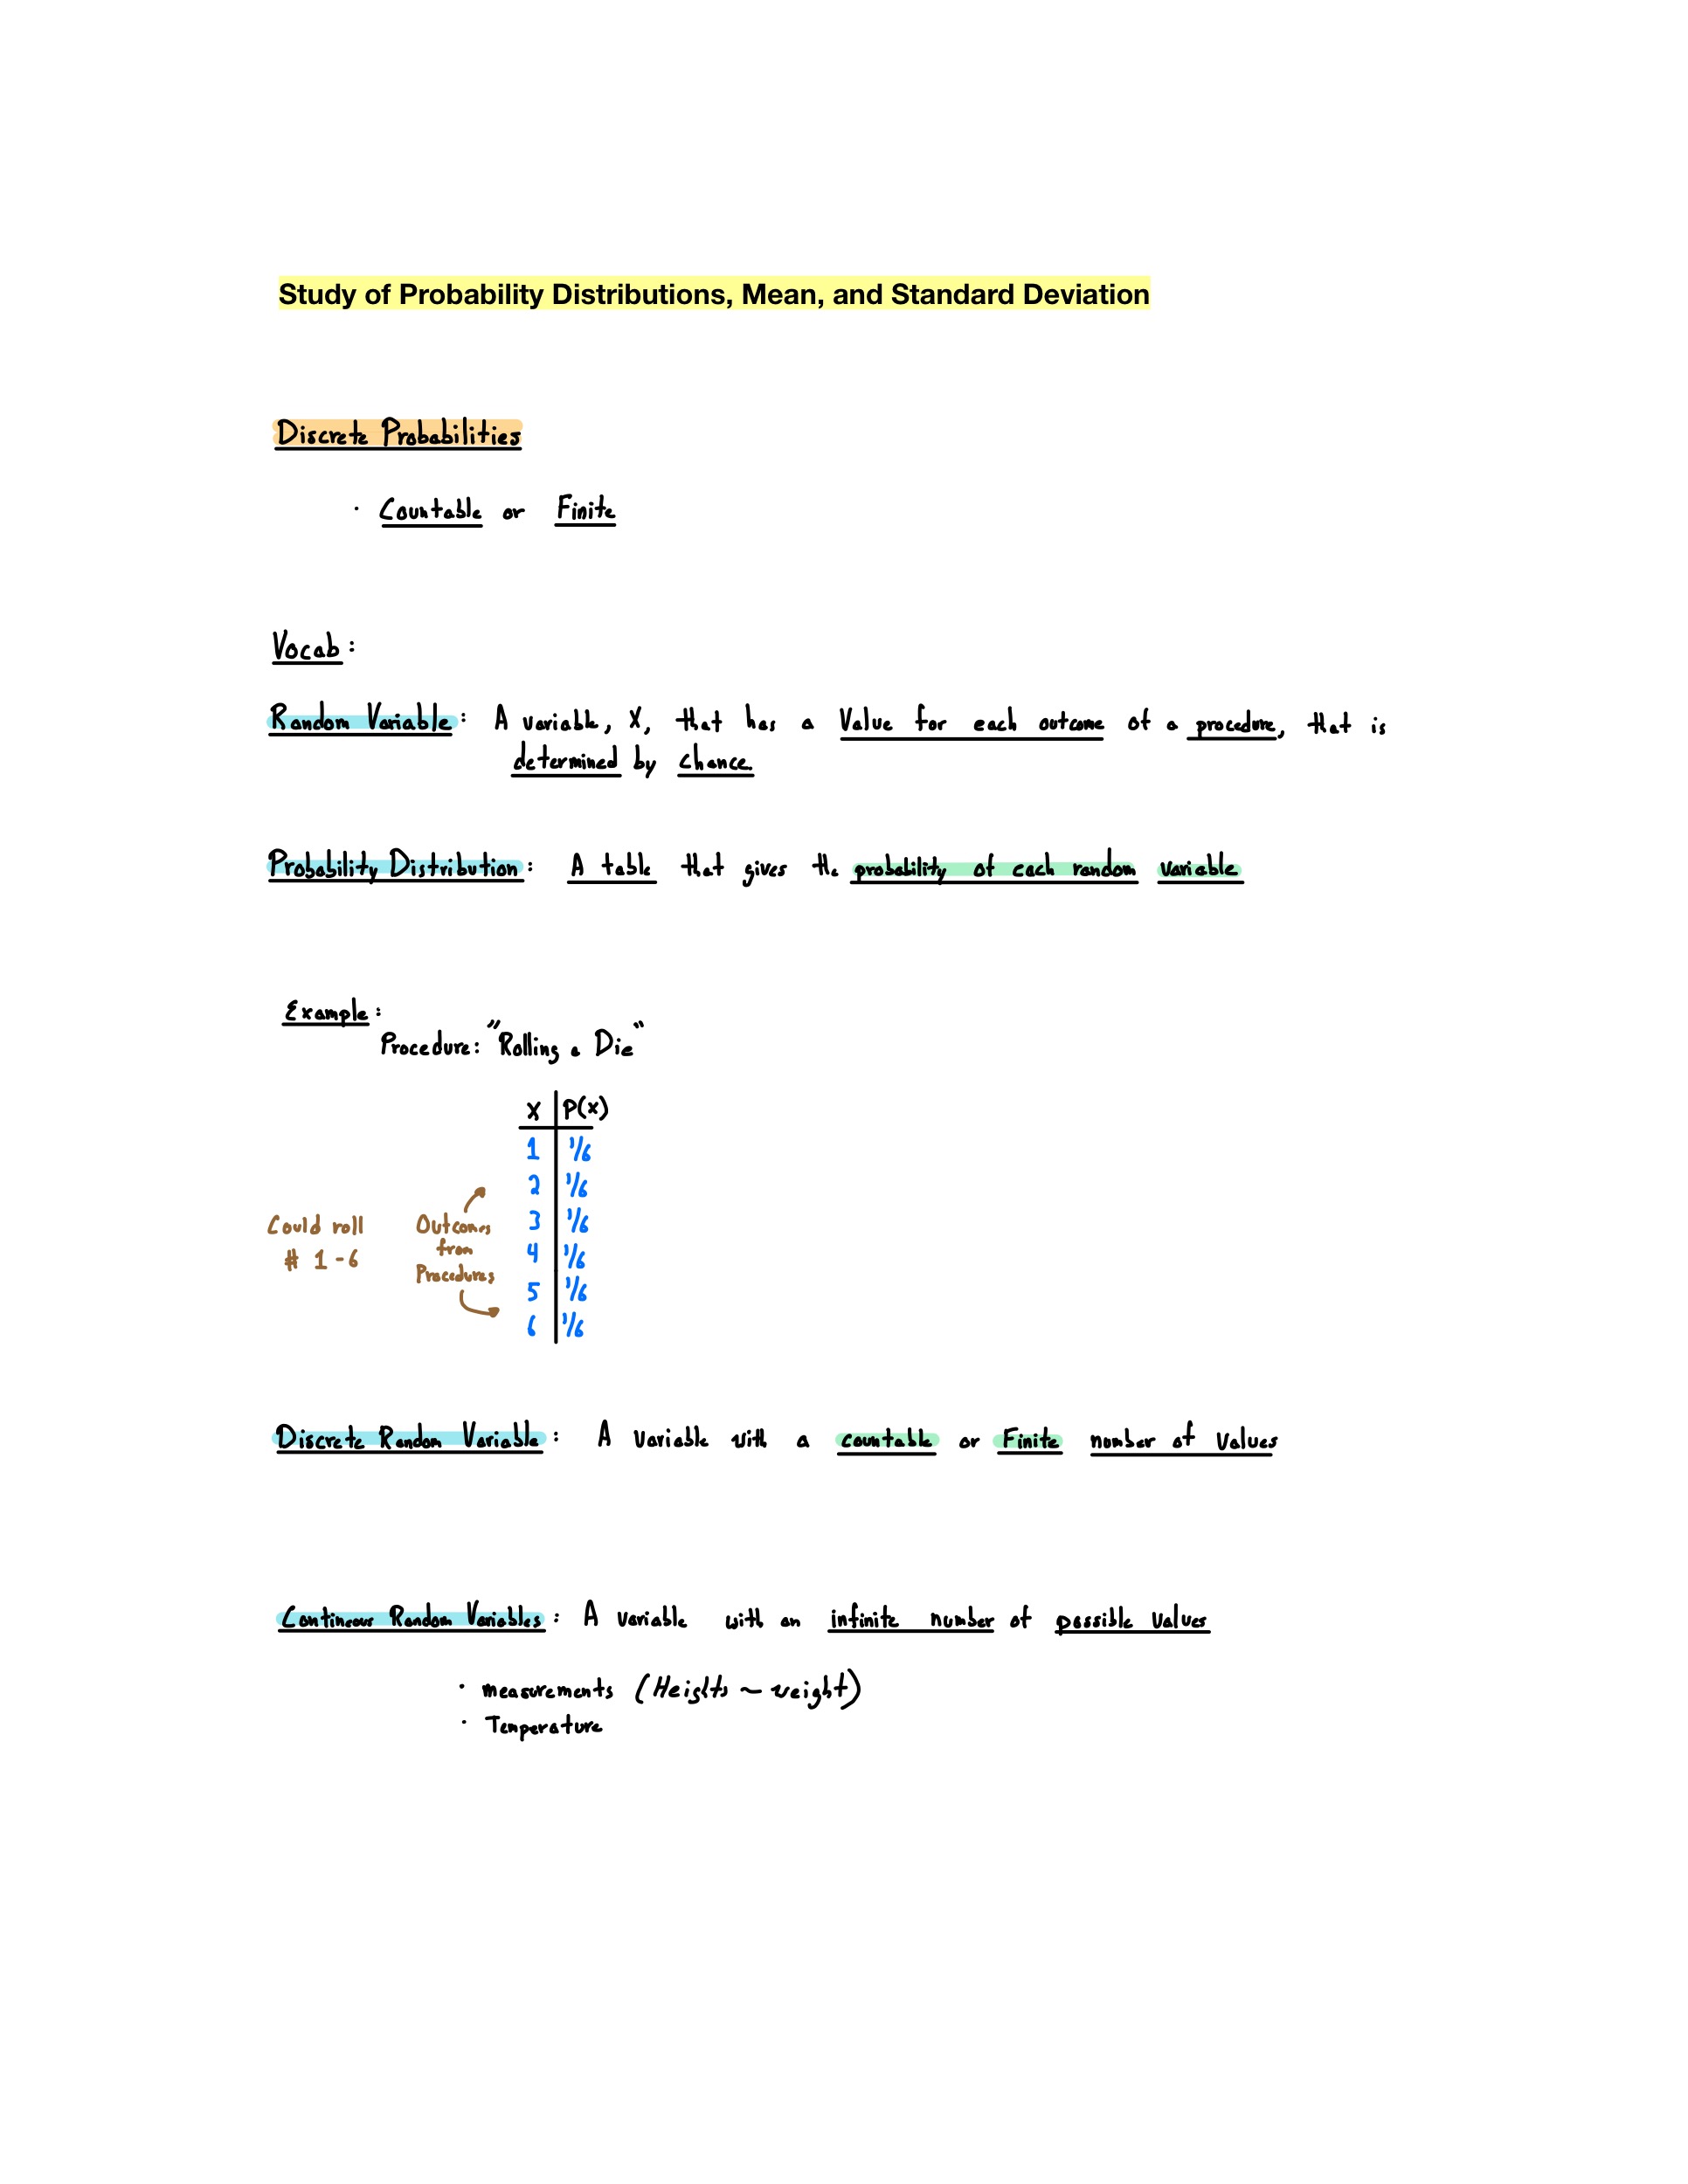 Study of Probability Distributions, Mean, and Standard Deviation
Discrete Probabilities
· Countable or Finite
Vocab:
Random Variable: A variable, X, that has a Value for each outcome of a procedure, that is
determined by chance.
Probability Distribution: A table that gives the probability of each random variable
Example:
Procedure: "Rolling a Die"
X P(x)
1 1/6
2 1/6
3 1/6
4 1/6
5 1/6
6 1/6
Could roll
# 1-6
Outcomes
from
Procedures
Discrete Random Variable: A Variable with a countable or Finite number of Values
Contineous Random Variables: A variable with an infinite number of possible values
· measurements (Heights ~ weight)
· Temperature